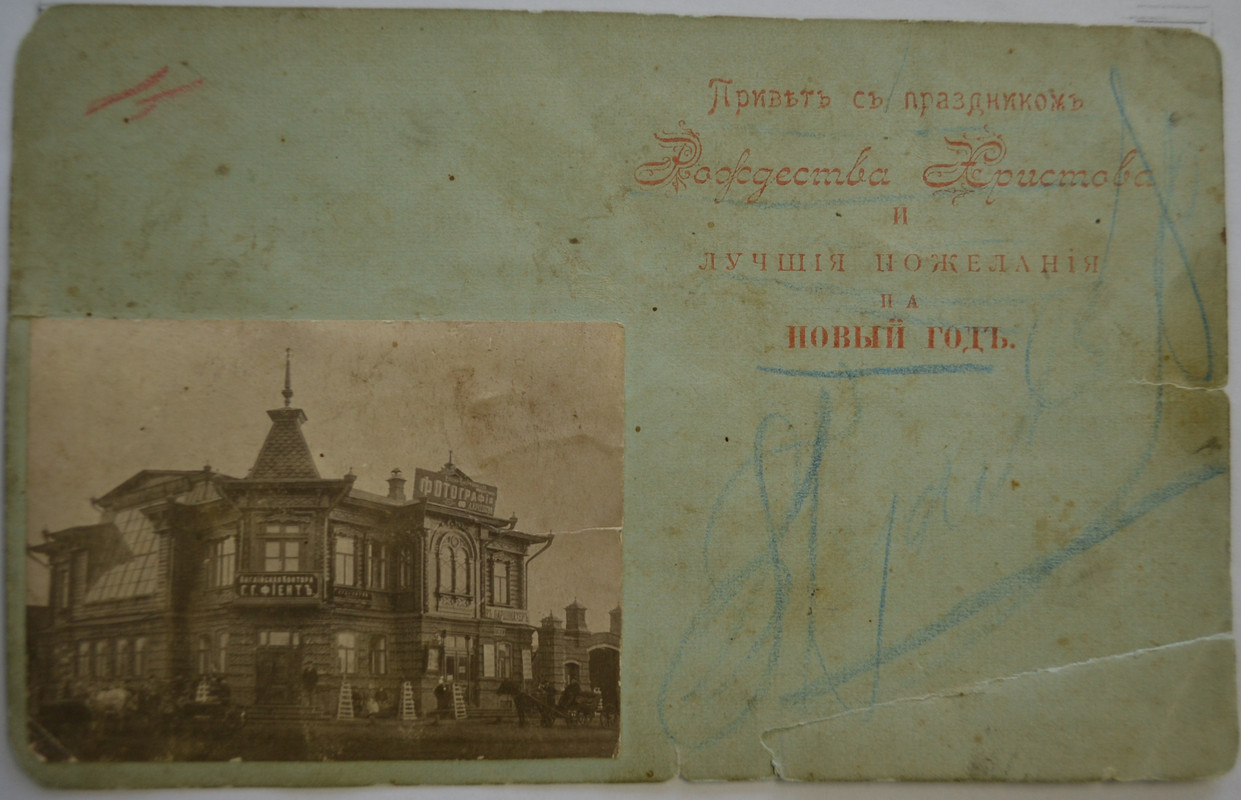 Привѣтъ съ праздникомъ
Рождества Христова
И
ЛУЧШІЯ ПОЖЕЛАНІЯ
НА
НОВЫЙ ГОДЪ.
ФОТОГРАФІЯ
КОНТОРА
Г.Г.ФІЕНТЪ